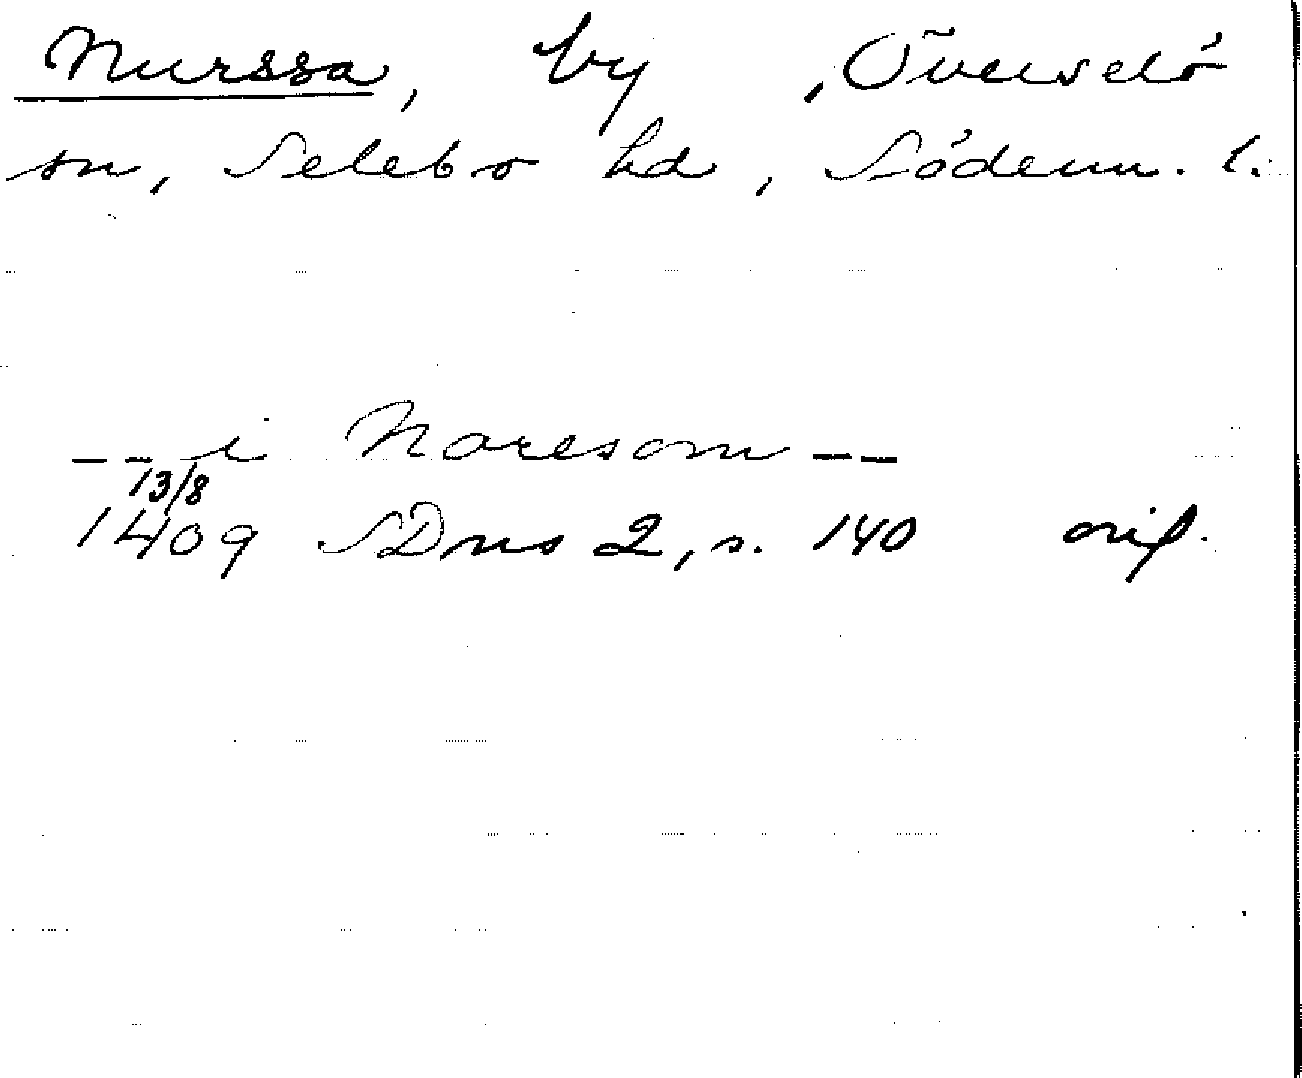 Nurssa, by, Överselö
sn, Selebo hd, Söderm. l.
-- i Noresom --
13/8
1409 SDns 2, s. 140 orig.